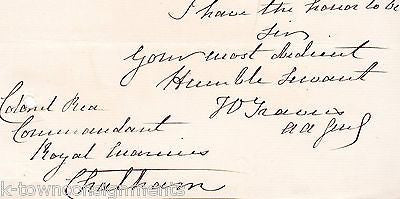 I have the honor to be
Sir
Your most obedient
Humble Servant
W Travers
a a Genl
Colonel Rea
Commandant
Royal Marines
Chatham
k-townconsignments